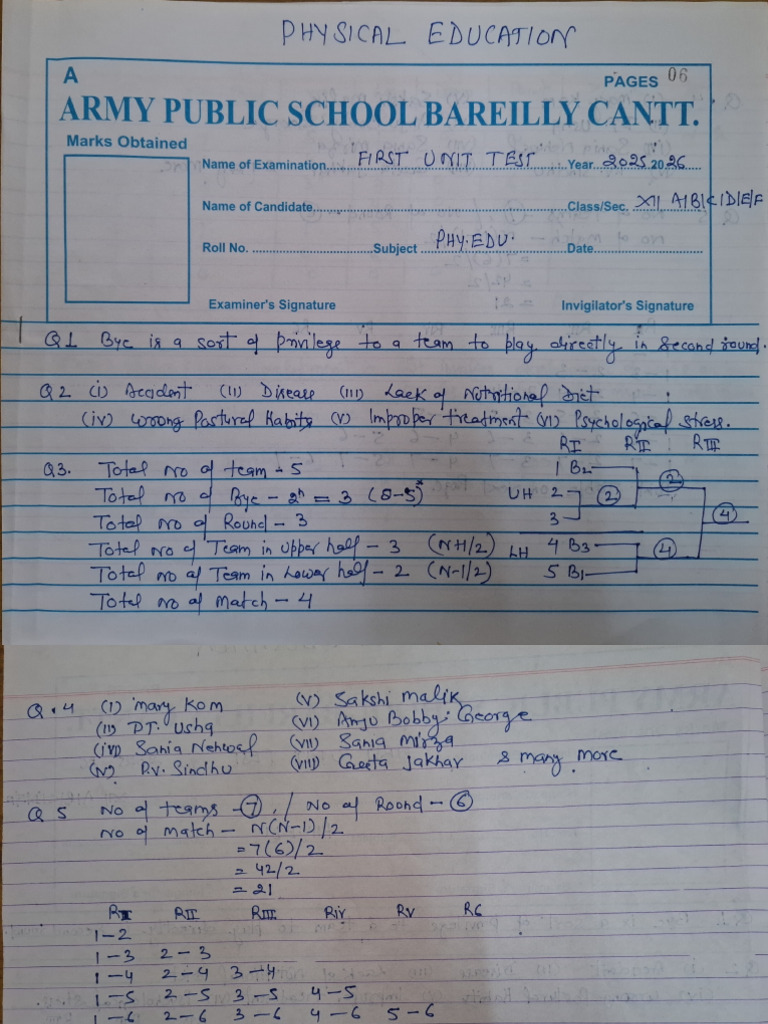 PHYSICAL EDUCATION
A
PAGES 06
ARMY PUBLIC SCHOOL BAREILLY CANTT.
Marks Obtained
Name of Examination FIRST UNIT TEST Year 2025 2026
Name of Candidate Class/Sec. XII A/B/C/D/E/F
Roll No. Subject PHY.EDU. Date
Examiner's Signature Invigilator's Signature
Q1 Bye is a sort of privilege to a team to play directly in second round.
Q2 (i) Accident (II) Disease (III) Lack of Nutritional Diet
(iv) Wrong Postural Habits (v) Improper treatment (VI) Psychological Stress.
RI RII RIII
Q3. Total No of team - 5
1 B2
2
Total No of Bye - 2ⁿ = 3 (8-5)
UH 2
2
Total No of Round - 3
3
4
Total No of Team in upper half - 3 (N+1/2)
LH 4 B3
4
Total No of Team in Lower half - 2 (N-1/2)
5 B1
Total No of Match - 4
Q.4 (I) Mary Kom (V) Sakshi Malik
(II) PT. Usha (VI) Anju Bobby. George
(III) Sania Nehwal (VII) Sania Mirza
(IV) P.v. Sindhu (VIII) Geeta Jakhar & many more
Q 5 No of teams - 7, / No of Roond - 6
No of match - N(N-1)/2
= 7(6)/2
= 42/2
= 21
RI RII RIII RIV RV R6
1-2
1-3 2-3
1-4 2-4 3-4
1-5 2-5 3-5 4-5
1-6 2-6 3-6 4-6 5-6